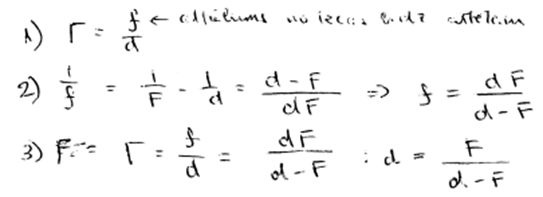 1) Γ = f/d ← attālums no lēcas līdz attēlam
2) 1/f = 1/F - 1/d = (d - F)/(dF) => f = dF/(d - F)
3) Γ = f/d = dF/(d - F) : d = F/(d - F)